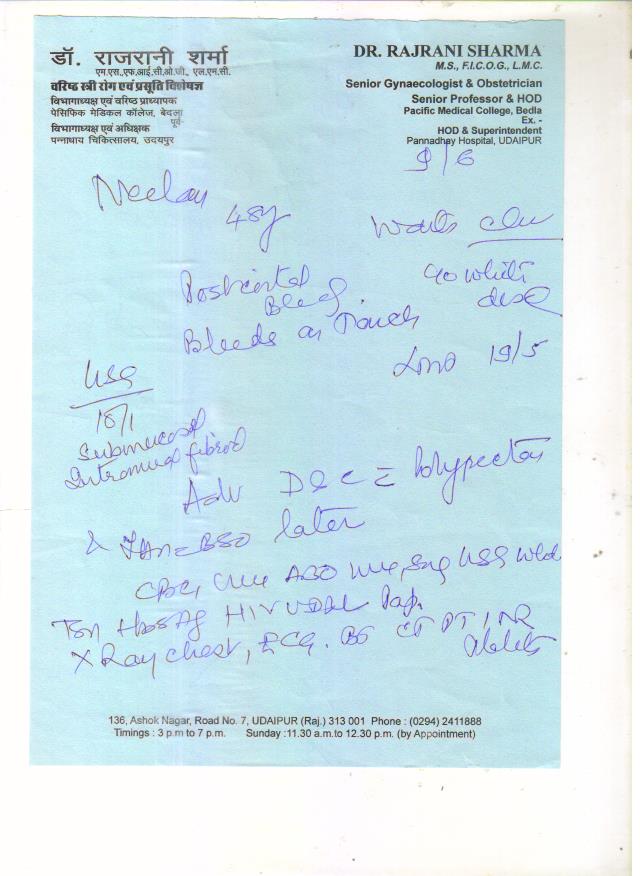 डॉ. राजरानी शर्मा
एम.एस.,एफ.आई.सी.ओ.जी., एल.एम.सी.
वरिष्ठ स्त्री रोग एवं प्रसूति विशेषज्ञ
विभागाध्यक्ष एवं वरिष्ठ प्राध्यापक
पेसिफिक मेडिकल कॉलेज, बेदला
पूर्व-
विभागाध्यक्ष एवं अधिक्षक
पन्नाधाय चिकित्सालय, उदयपुर
DR. RAJRANI SHARMA
M.S., F.I.C.O.G., L.M.C.
Senior Gynaecologist & Obstetrician
Senior Professor & HOD
Pacific Medical College, Bedla
Ex. -
HOD & Superintendent
Pannadhay Hospital, UDAIPUR
9/6
Neelam
48y
Postcoital
Bleed
c/o white
disc
Bleeds on Touch
LMP 19/5
USG
18/1
Submucosal
Intramural fibroid
Adv D&C Polypectomy
& later
CBC, ABO USG
HBsAg HIV VDRL Pap.
X Ray chest, ECG. BT CT PT INR
136, Ashok Nagar, Road No. 7, UDAIPUR (Raj.) 313 001 Phone : (0294) 2411888
Timings : 3 p.m to 7 p.m. Sunday :11.30 a.m.to 12.30 p.m. (by Appointment)